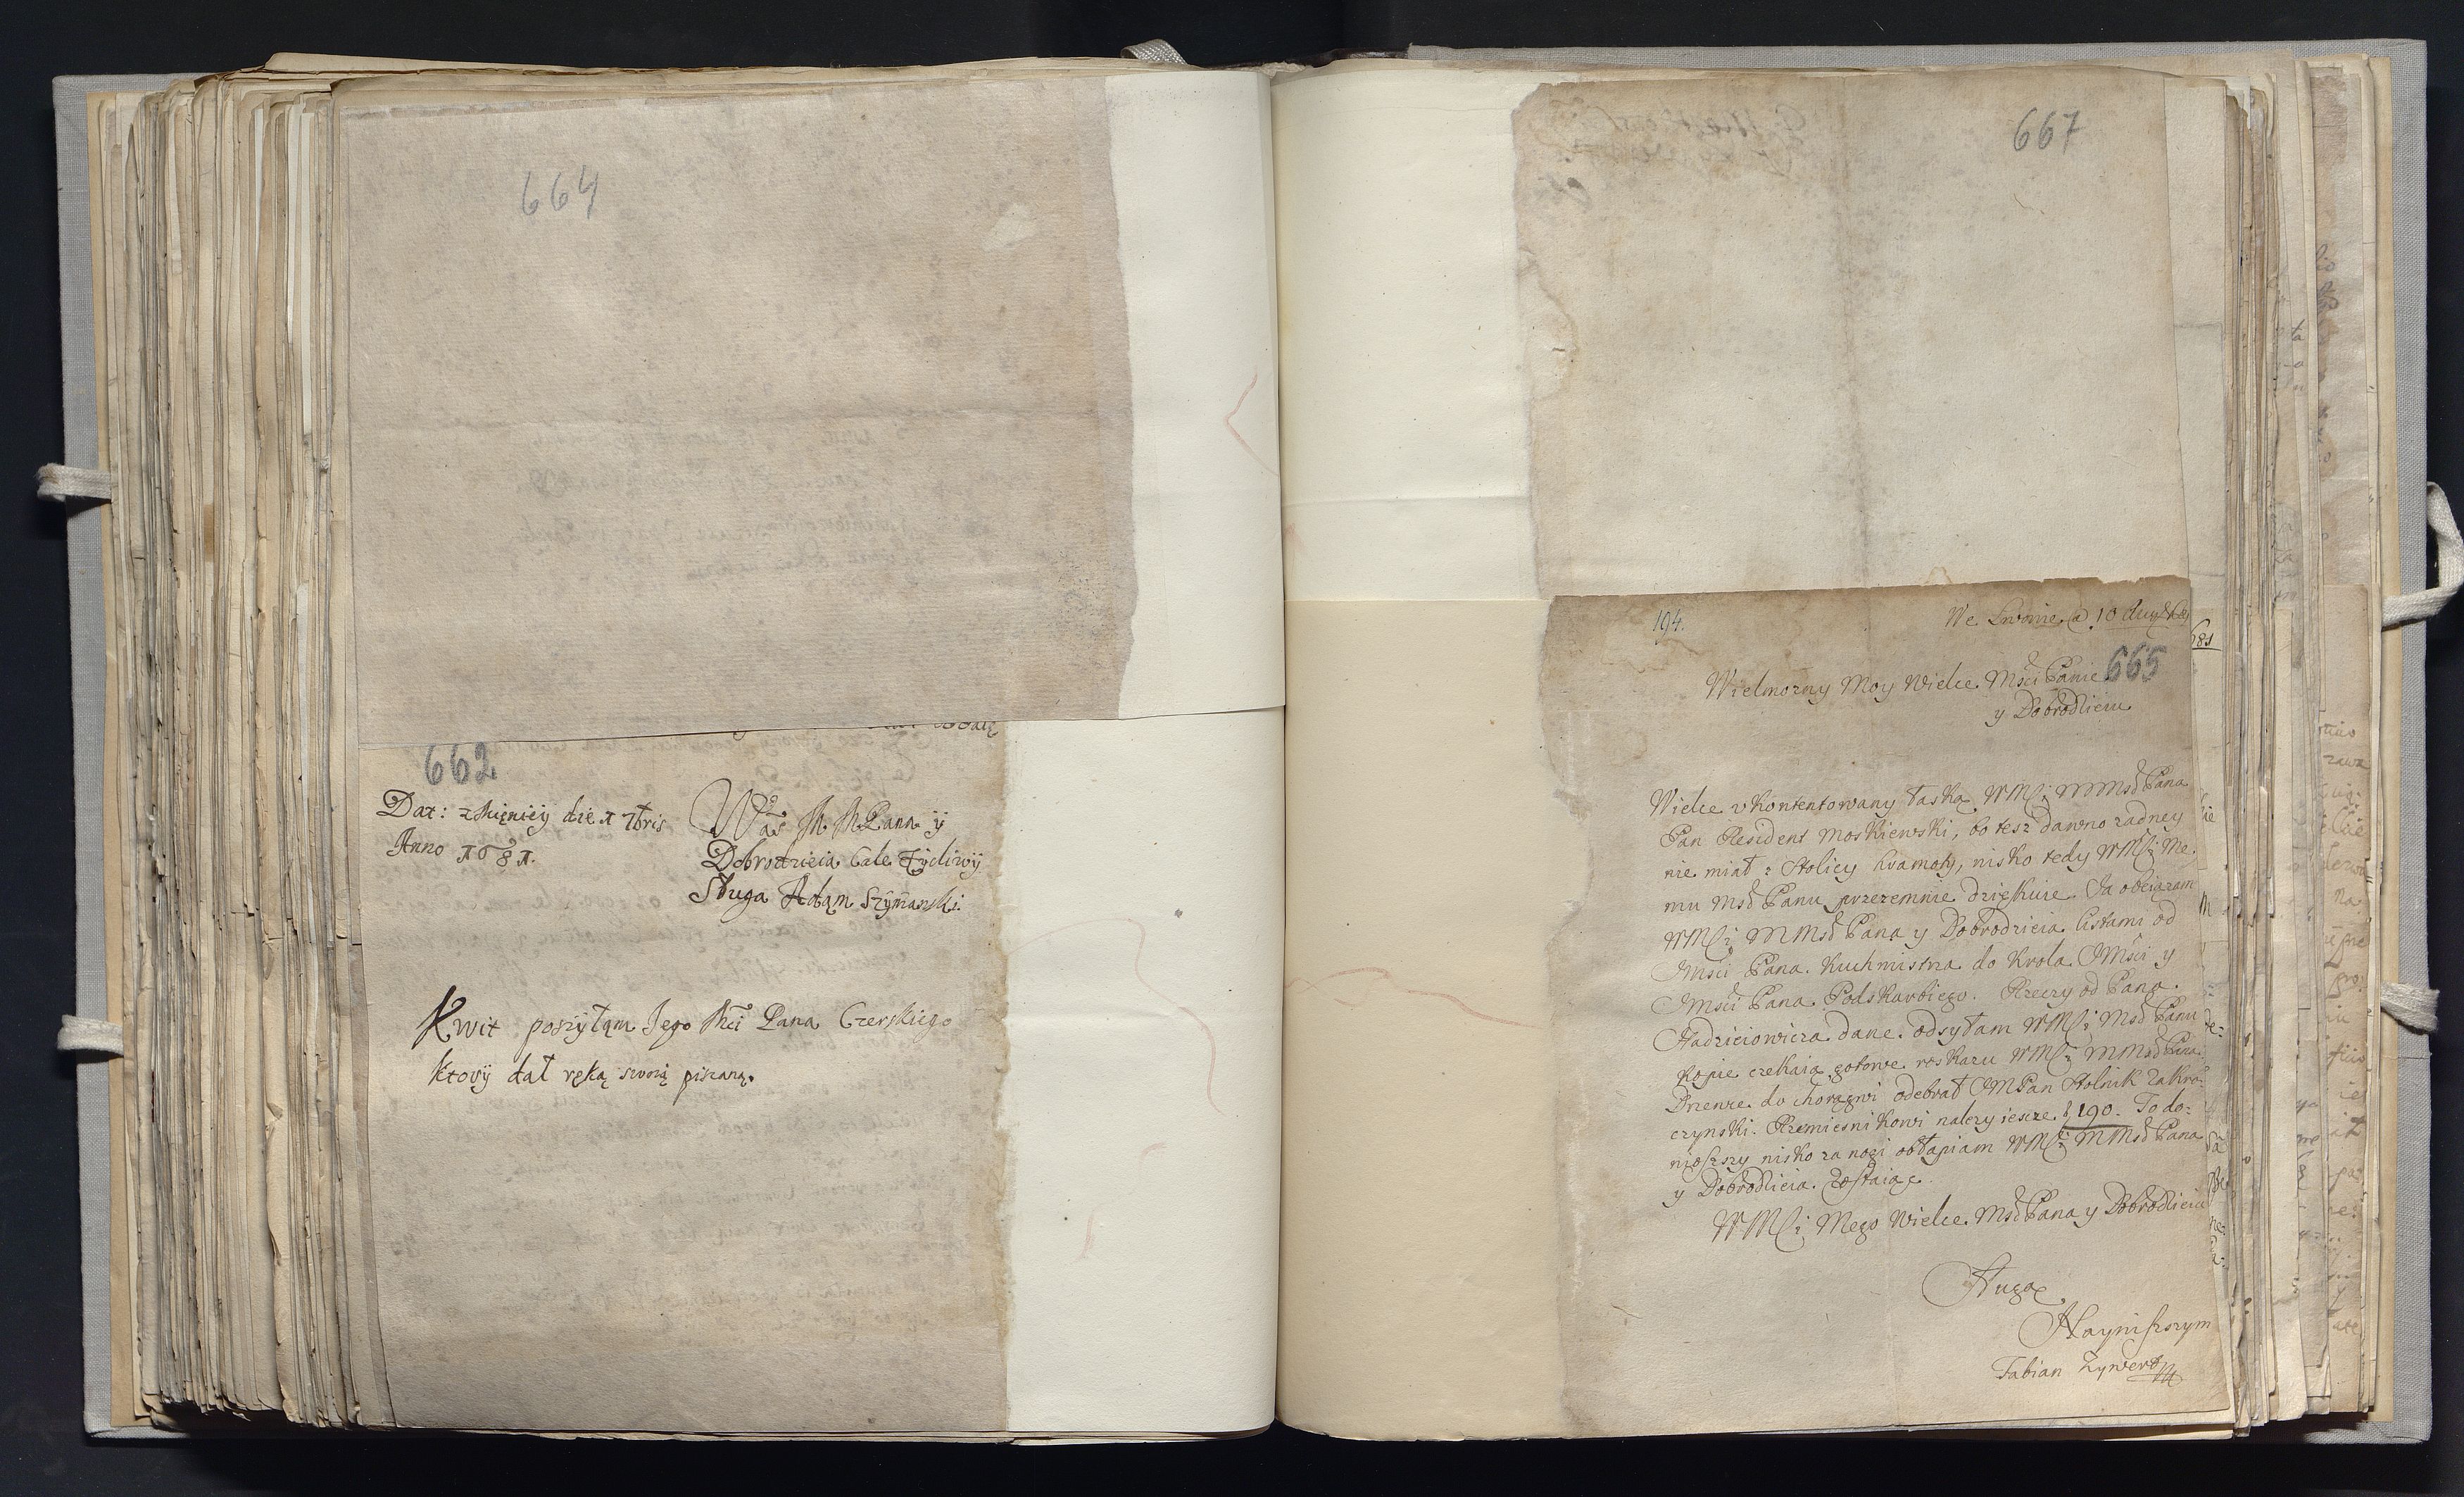 664
662
Dat: z die 1 7bris
Anno 1681.
Was M MPana y
Dobrodzieia Cale Życliwÿ
Sługa Adąm Szÿmanski.
Kwit posÿłąm Jego Mci Pana Czerskiego
ktorÿ dał ręką swoią pisaną.
667
194.
We Lwowie 10 Aug
665
Wielmozny Moy Wielce Msci Panie
y Dobrodzieiu
Wielce vkontentowany łaską WMCi MMsc Pana
Pan Resident Moskiewski, bo tesz dawno zadney
nie miał z Stolicy hramoty, nisko tedy WMCi Me:
mu Msc Panu przezemnie dziękuie. Ja obciązam
WMCi MMsc Pana y Dobrodzieia listami od
JMsci Pana Kuchmistrza do Krola JMsci y
JMsci Pana Podskarbiego. Rzeczy od Pana
Hadziciowicza dane odsyłam WMCi Msc Panu
kopie czekaią gotowe roskazu WMCi MMsc Pana
Drzewce do chorągwi odebrał JMPan Stolnik Zakro:
czynski. Rzemiesnikowi nalezy iescze f 190. To do:
niosszy nisko za nogi obłapiam WMCi MMsc Pana
y Dobrodzieia. Zostaiąc
WMCi Mego Wielce Msc Pana y Dobrodzieia
Sługą
Nayniszszym
Fabian Zywert